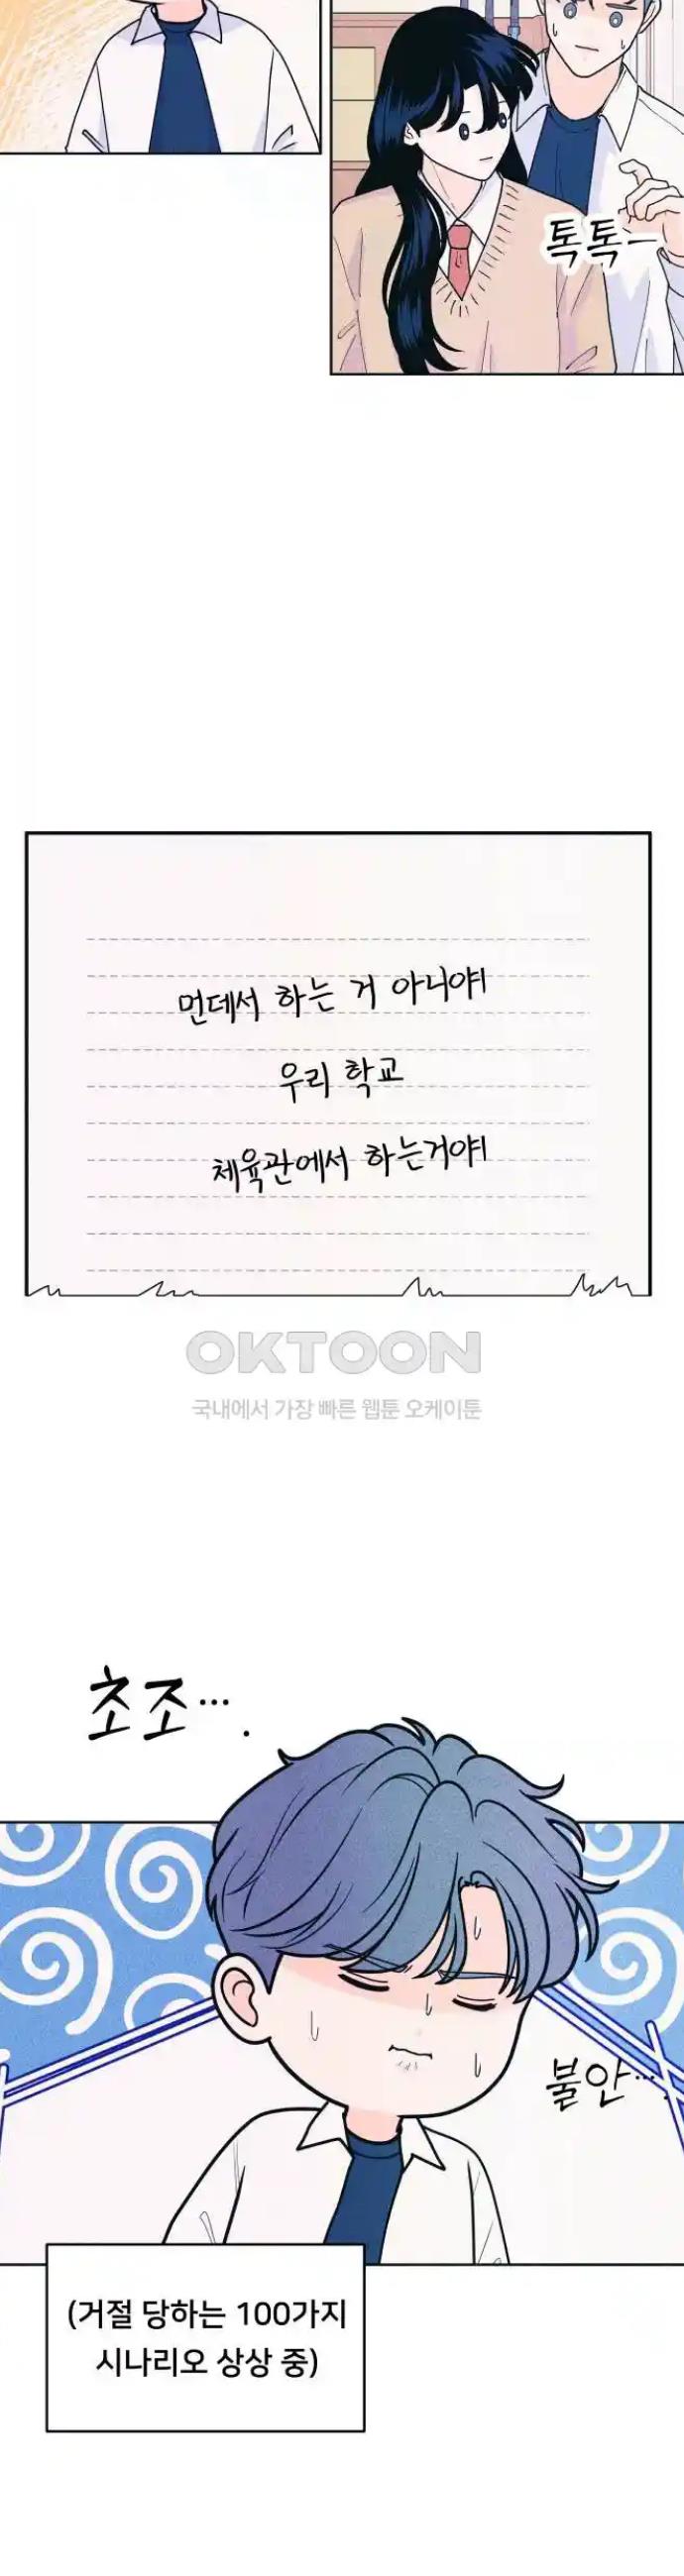 톡톡—
먼데서 하는 거 아니야!
우리 학교
체육관에서 하는거야!
OKTOON
국내에서 가장 빠른 웹툰 오케이툰
초조….
불안….
(거절 당하는 100가지
시나리오 상상 중)